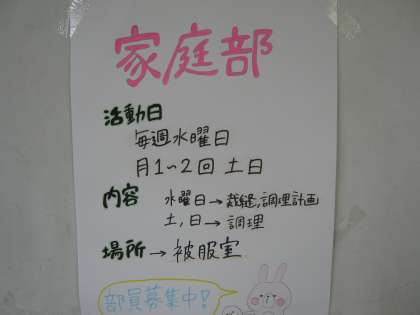 家庭部
活動日
毎週水曜日
月1~2回 土日
内容 水曜日→裁縫,調理計画
土,日→調理
場所→被服室
部員募集中!